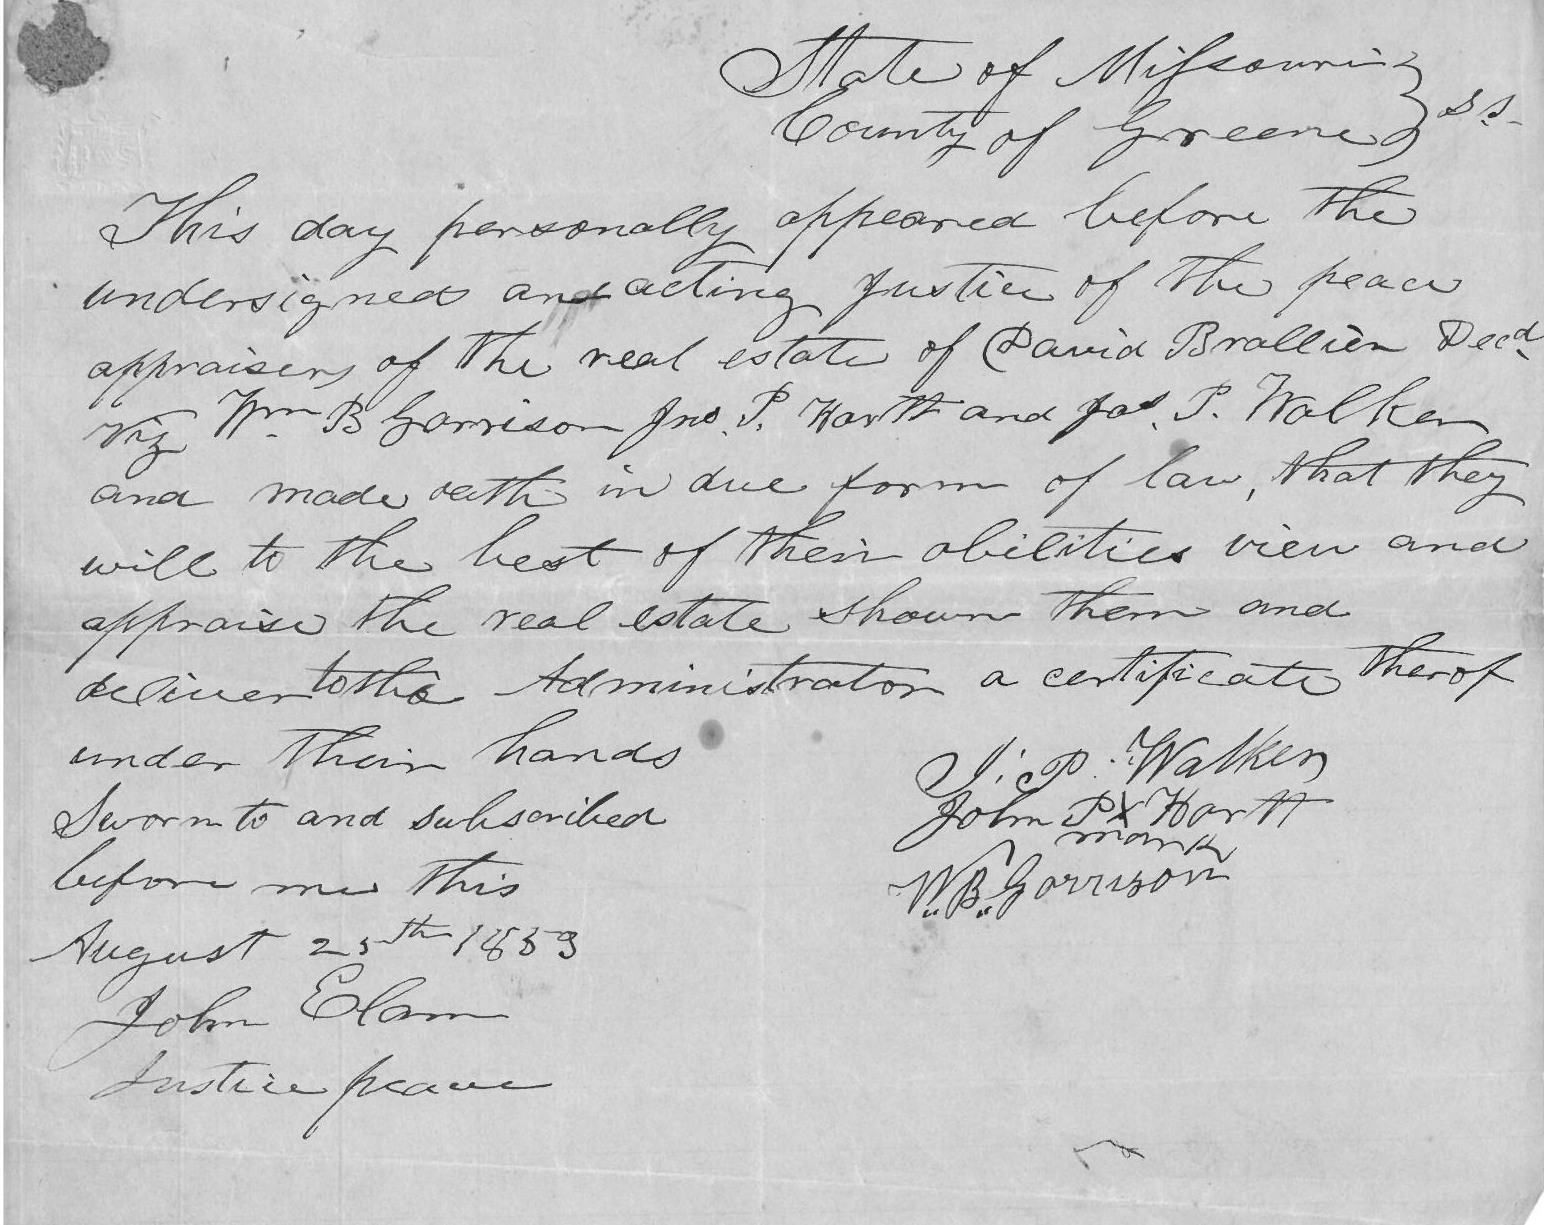 State of Missouri }
County of Greene } s.s.
This day personally appeared before the
undersigned and acting Justice of the peace
appraisers of the real estate of David Brallier Decd
viz Wm. B Garrison Jno. P. Hartt and Jas. P. Walker
and made oath in due form of law, that they
will to the best of their abilities view and
appraise the real estate shown them and
deliver to the Administrator a certificate therof
under their hands
J. P. Walker
Sworn to and subscribed
John P X Hartt
mark
before me this
W.B. Garrison
August 25th 1853
John Elam
Justice peace